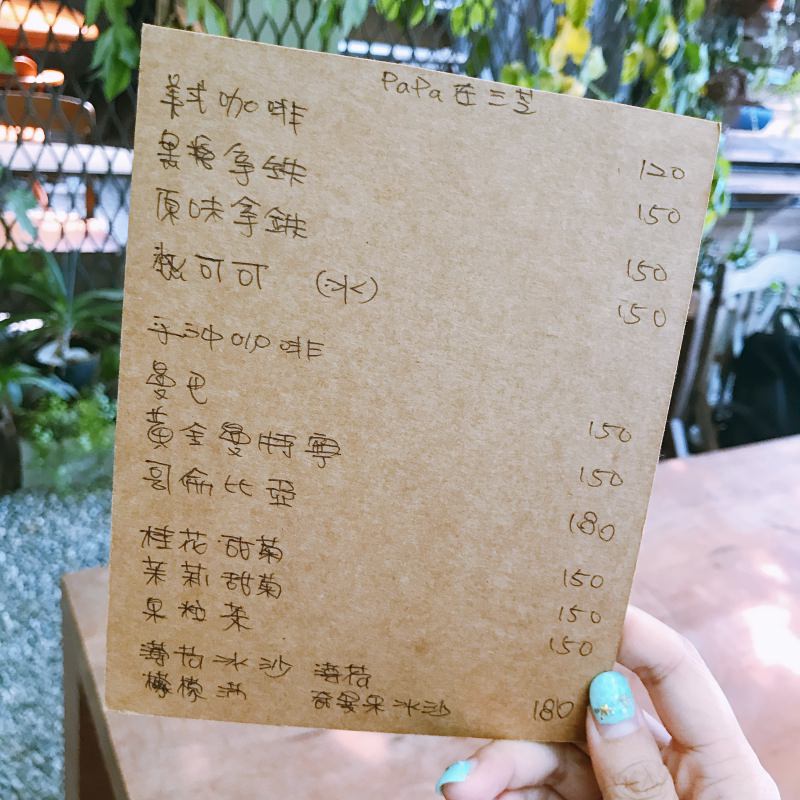 PaPa在三芝
美式咖啡 120
黑糖拿鐵 150
原味拿鐵 150
熱可可 (冰) 150
手沖咖啡
曼巴 150
黃金曼特寧 150
哥倫比亞 180
桂花甜菊 150
茉莉甜菊 150
果粒茶 150
薄荷冰沙
檸檬 奇異果冰沙 180